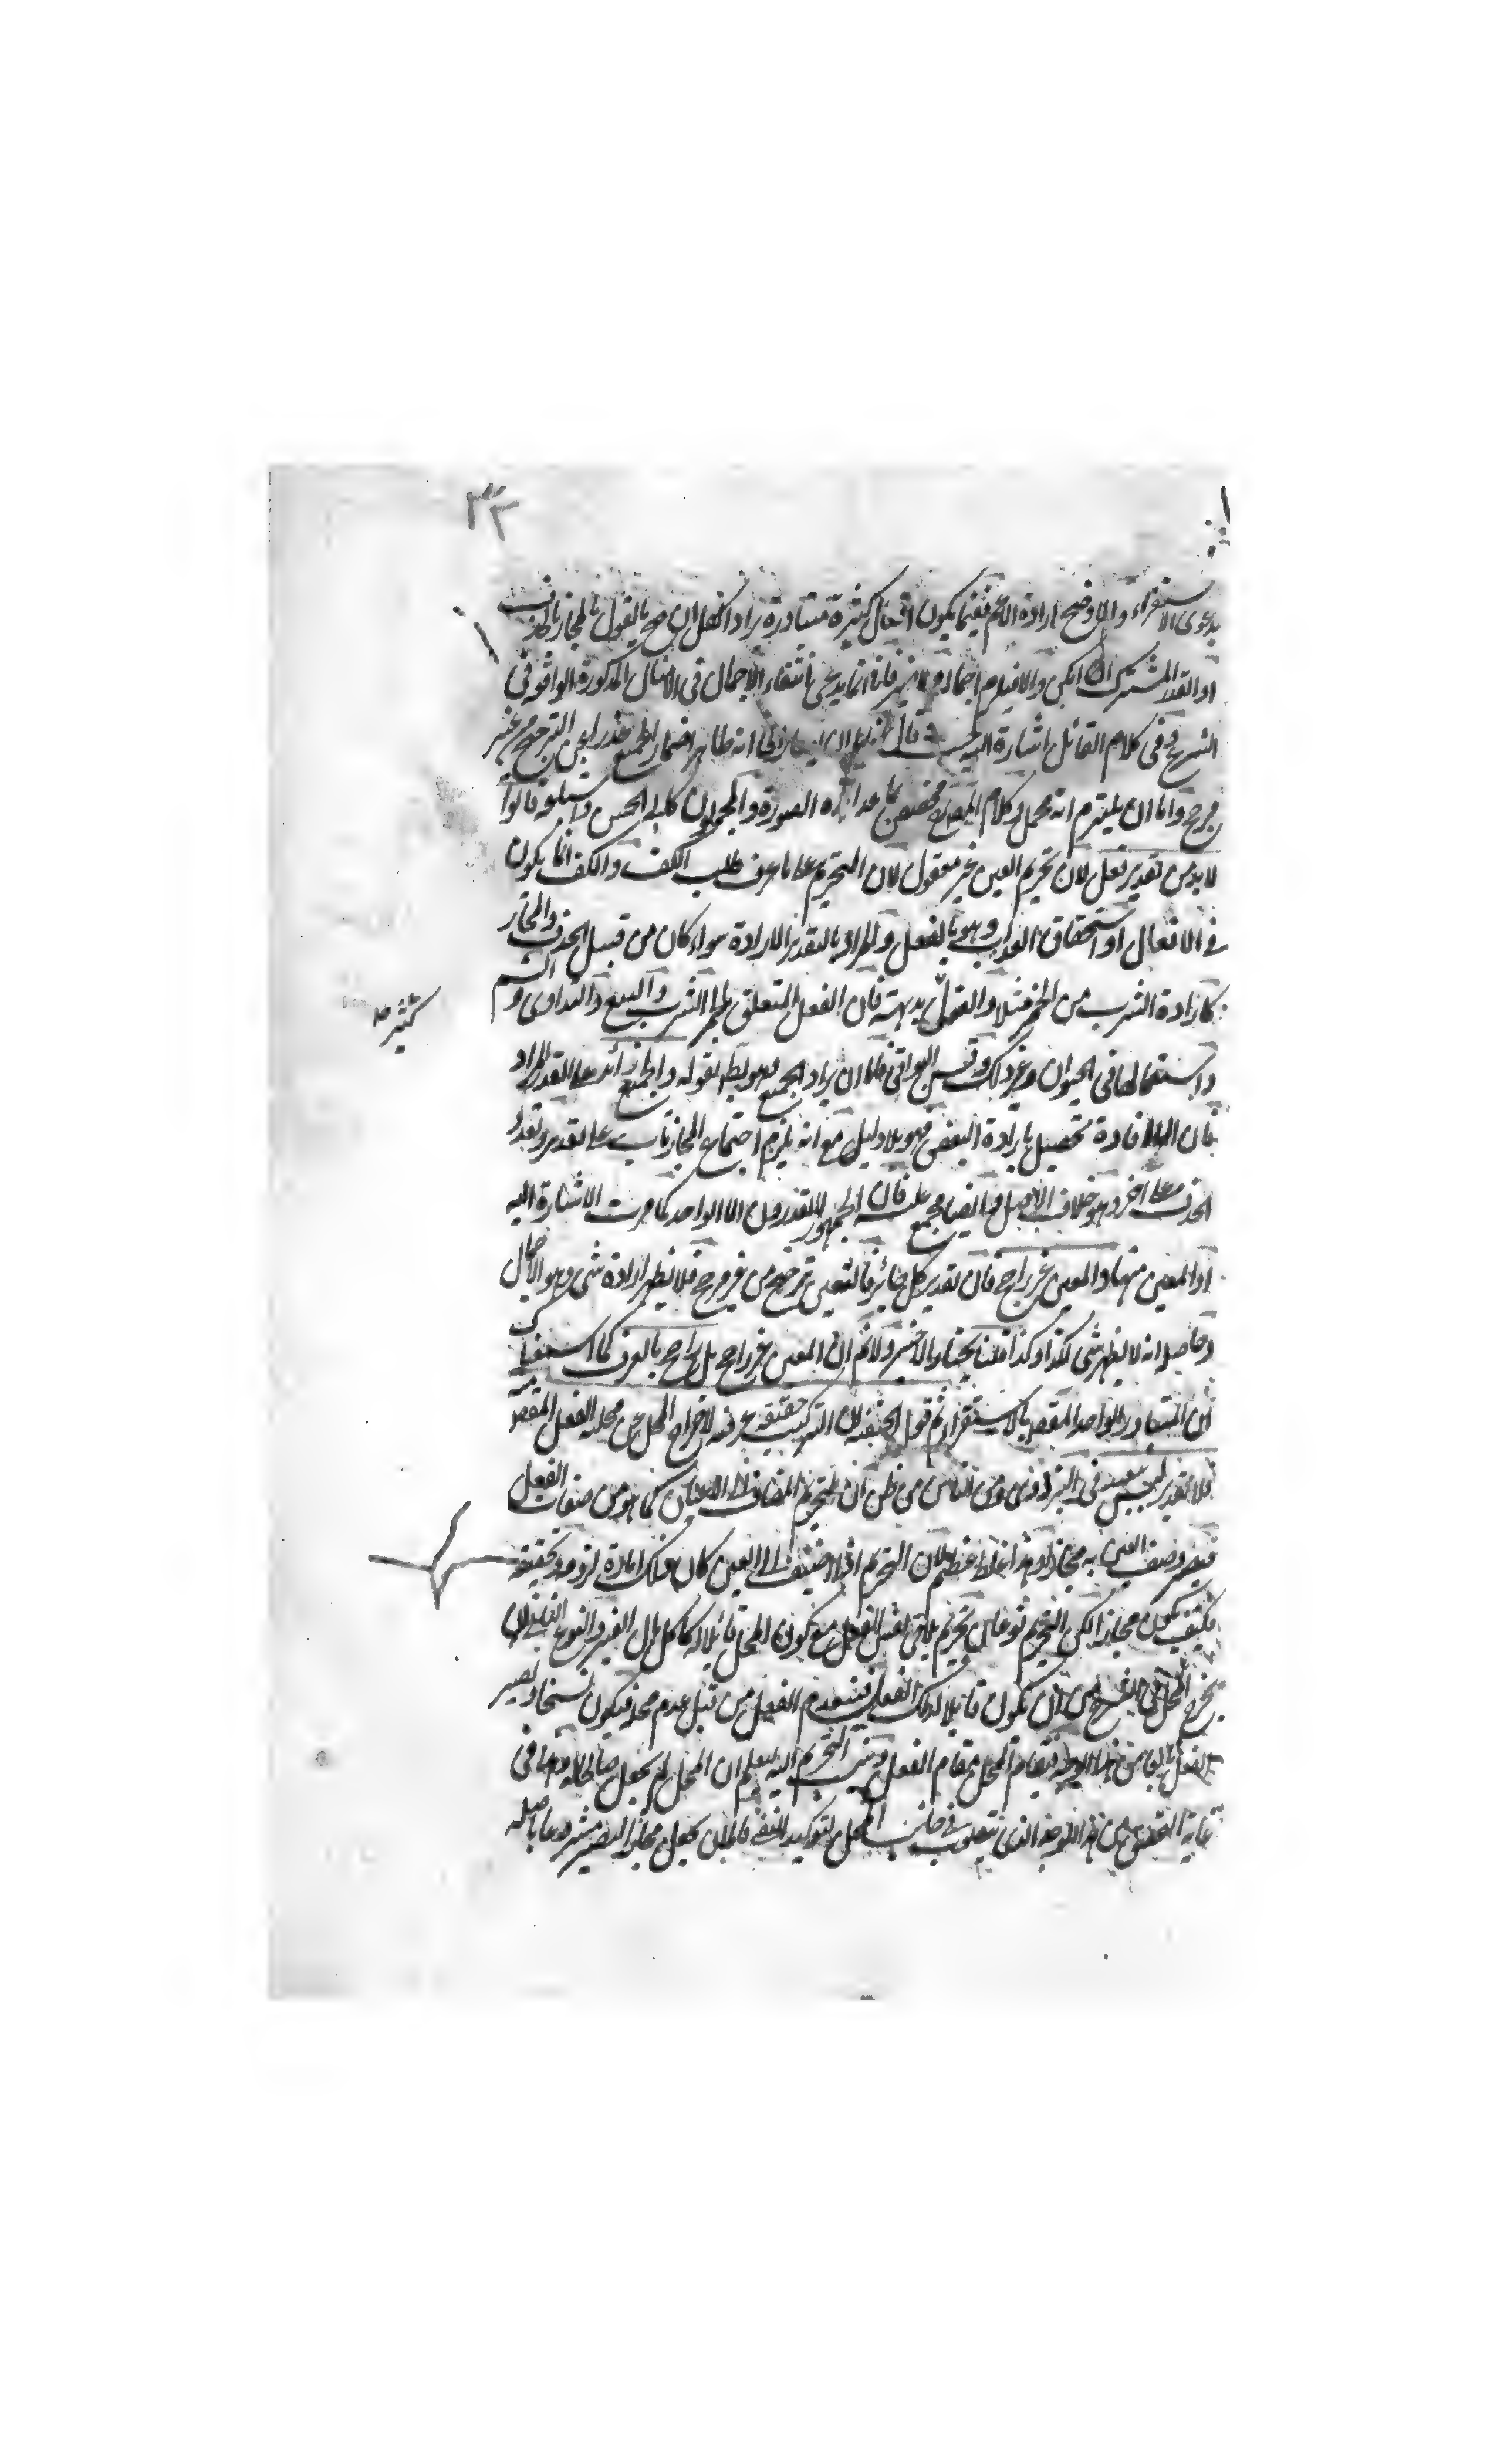 ٣٣
بدعوى الاستقراء والا وضح ارادة الاعم فيما يكون افعال كثيرة متبادرة يراد الكل ان صح بالقول بالمجاز بالحذف
او القدر المشترك ان امكن والا فيلزم اجماله ولا ضير فانه انما يدعى انتفاء الاجمال فى الامثال المذكورة الواقع فى
الشرع وفى كلام القائل اشارة اليه حيث قال انه ظاهر اضمار الجميع حذرا عن الترجيح من غير
مرجح واما ان يلتزم انه مجمل وكلام مخصوص بما عدا هذه الصورة والمجملون كابى الحسن قالوا
لا بد من تقدير فعل لان تحريم العين غير معقول لان التحريم على ما عرف طلب الكف والكف انما يكون
فى الافعال او استحقاق العذاب وهو بالفعل والمراد بالتقدير الارادة سواء كان من قبيل الحذف والمجاز
كارادة الشرب من الخمر مثلا فان الفعل المتعلق بالخمر الشرب والبيع والتداوى و
كثير صح
واستعمالها فى الحيوان وغير ذلك وقس البواقى فاما ان يراد الجميع وهو بط بقوله والجميع زائد على القدر المراد
فان الافادة تحصيل بارادة البعض فهو بلا دليل مع انه يلزم اجتماع المجازيات على تقدير وتعدد
الحذف على اخر وهو خلاف الاصل وايضا مجمع عليه فان الجمهور لا يقدرون الا الواحد كما مرت الاشارة اليه
او المعين منها والمعين غير راجح فان تقدير كل جائز فالتعيين ترجيح من غير مرجح فلا يظهر ارادة شئ وهو الاجمال
وحاصله انه لا يظهر شئ كذا وكذا قلنا نختار الاخير ولا نم ان المعين غير راجح بل راجح بالعرف كما اسلفنا
ان المتبادر الواحد المقصود بالاستقراء ثم قول الحنفية لان التركيب حقيقة عرفية لاخراج المحل عن محلية الفعل المقصود منه
فلا تقدير ليس ببعيد فى البزدوى ومن الناس من ظن ان التحريم المضاف الى الاعيان كما هو من صفات الفعل
فيصير وصف العين به مجازا وهذا غلط عظيم لان التحريم اذا اضيف الى العين كان ذلك امارة لزومه وتحققه
فكيف يكون مجازا لكن التحريم نوعان تحريم يلاقى نفس الفعل مع كون المحل قابلا له كاكل مال الغير والنوع الثانى ان
يخرج المحل فى الشرع من ان يكون قابلا لذلك الفعل فينعدم الفعل من قبل عدم محله فيكون نسخا ويصير
الفعل تابعا من هذا الوجه فيقام المحل مقام الفعل وينسب التحريم اليه ليعلم ان المحل لم يجعل صالحا له وهذا فى
غاية التحقيق من هذا الوجه الذى يتصور فى جانب المحل لتوكيد النفى فاما ان يجعل مجازا ليصير مشروعا باصله